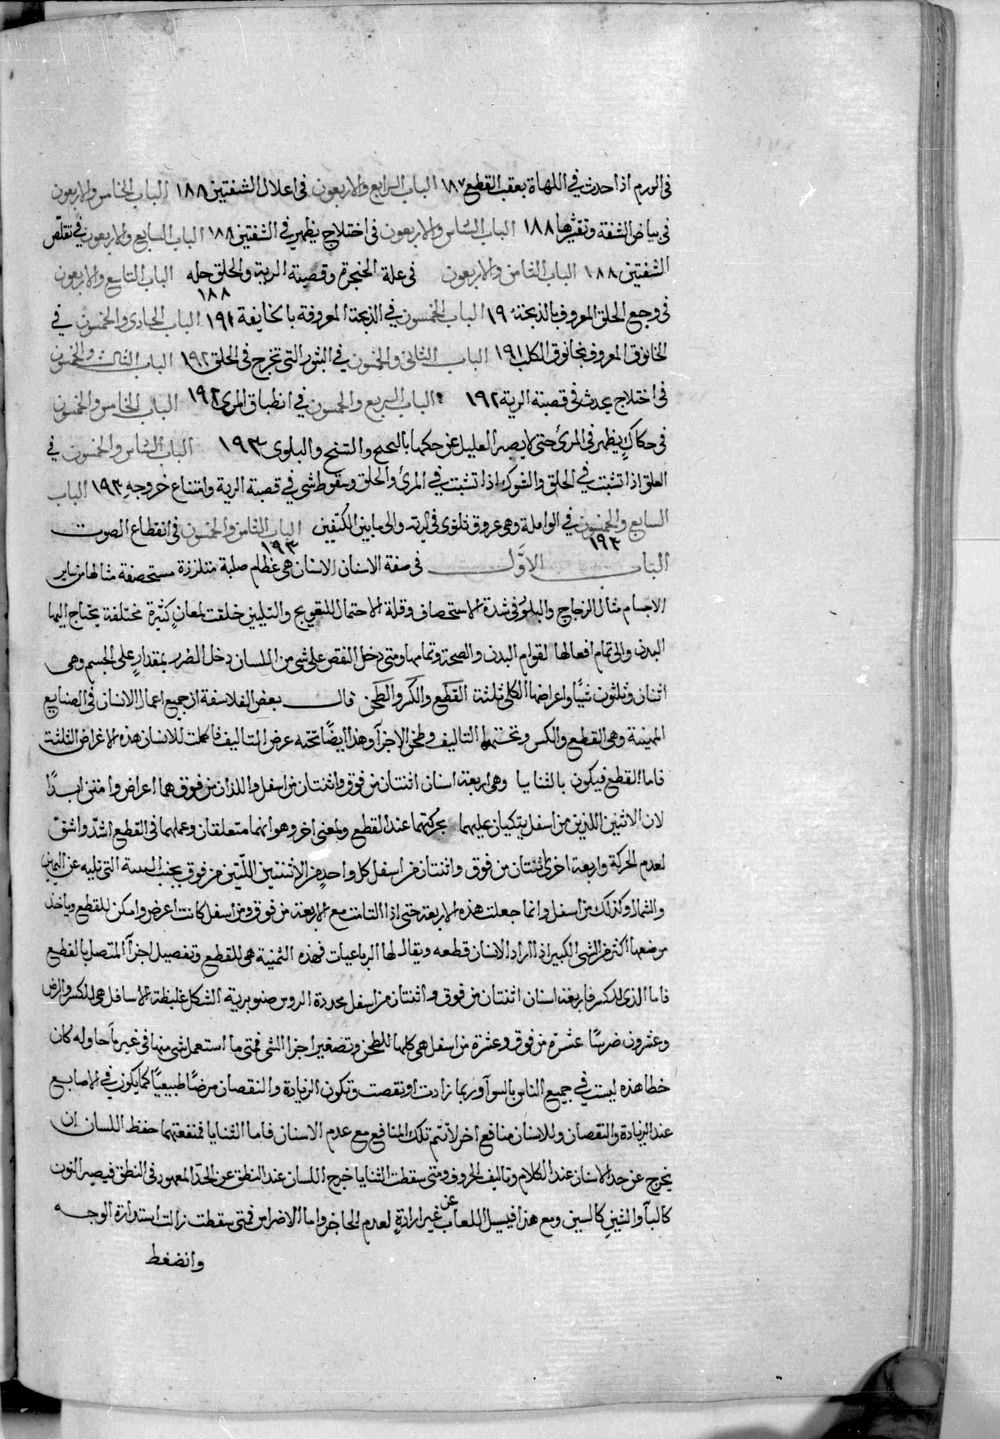 في الورم اذا حدث في اللهاة بعقب القطع ١٨٧ الباب الرابع والاربعون في اعلال الشفتين ١٨٨ الباب الخامس والاربعون
في بياض الشفة وتقشرها ١٨٨ الباب السادس والاربعون في اختلاج يظهر في الشفتين ١٨٨ الباب السابع والاربعون في تقلص
الشفتين ١٨٨ الباب الثامن والاربعون في علة الحنجرة وقصبة الرية والحلق جله ١٨٨ الباب التاسع والاربعون
في وجع الحلق المعروف بالذبحة ١٩٠ الباب الخمسون في الذبحة المعروفة بالخانقة ١٩١ الباب الحادي والخمسون في
الخانوق المعروف بخانوق الكلب ١٩١ الباب الثاني والخمسون في البثور التي تخرج في الحلق ١٩٢ الباب الثالث والخمسون
في اختلاج يحدث في قصبة الرية ١٩٢ الباب الربع والخمسون في انطباق المرى ١٩٢ الباب الخامس والخمسون
في حكاك يظهر في المرئ حتى لا يصبر العليل عن حكها بالتنحنح والتنخع والبلوى ١٩٣ الباب السادس والخمسون في
العلق اذا تثبت في الحلق والشوك اذا تثبت في المرئ والحلق وسقوط شي في قصبة الرية وامتناع خروجه ١٩٣ الباب
السابع والخمسون في الواملة وهي عروق تلتوى في لبته والى ما بين الكتفين ١٩٣ الباب الثامن والخمسون في انقطاع الصوت ١٩٣
الباب الاول في صفة الاسنان الاسنان هي عظام صلبة متلززة مستحصفة مثالها من ساير
الاجسام مثال الزجاج والبلور في شدة الاستحصاف وقلة الاحتمال للتعويج والتليين خلقت لمعان كثيرة مختلفة يحتاج اليها
البدن والى تمام افعالها لقوام البدن والصحة وتمامها ومتى دخل النقص على شي من الاسنان دخل الضرر بمقداره على الجسم وهي
اثنان وثلثون سنا واعراضها الكلى ثلثة القطع والكسر والطحن قال بعض الفلاسفة ان جميع اعمال الانسان في الصنايع
المهينة وهي القطع والكسر وتحتهما التاليف وطحن الاجزآ وهذا ايضا تحته عرض التاليف فاكملت للاسنان هذه الاغراض الثلثة
فاما القطع فيكون بالثنايا وهي اربعة اسنان اثنتان من فوق واثنتان من اسفل واللذان من فوق هما اعراض وامتن ابدا
لان الاثنتين اللذين من اسفل يتكيان عليهما بحركتهما عند القطع ولمعنى اخر وهو انهما متعلقان وعملهما في القطع اشد واشق
لعدم الحركة واربعة اخرى اثنتان من فوق واثنتان من اسفل كل واحد من الاثنتين اللتين من فوق بجنب السنة التي تليه عن اليمين
والشمال وكذلك من اسفل وانما جعلت هذه الاربعة حتى اذا التامت مع الاربعة من فوق ومن اسفل كانت اعرض وامكن للقطع وياخذ
موضعها اكثر من الشي الكبير اذا اراد الانسان قطعه ويقال لها الرباعيات فهذه الثمنية هي للقطع وتفصيل اجزآ المتصل بالقطع
فاما الذي للكسر فاربعة اسنان اثنتان من فوق واثنتان من اسفل محددة الروس صنوبرية الشكل غليظة الاسافل هي للكسر والرض
وعشرون ضرسا عشرة من فوق وعشرة من اسفل هي كلها للطحن وتصغير اجزا الشي فمتى ما استعمل شي منها في غير ما حاوله كان
خطا هذه ليست في جميع الناس بالسوآ وربما زادت او نقصت وتكون الزيادة والنقصان مرضا طبيعيا كما يكون في الاصابع
عند الزيادة والنقصان وللاسنان منافع اخر لا تتم تلك المنافع مع عدم الاسنان فاما الثنايا فمنفعتهما حفظ اللسان ان
يخرج عن حد الاسنان عند الكلام وتاليف الحروف ومتى سقطت الثنايا خرج اللسان عند النطق عن الحد المعهود في النطق فيصير النون
كالبآ والشين كالسين ومع هذا فيسيل اللعاب عن غير ارادة لعدم الحاجز واما الاضراس فمتى سقطت زالت استدارة الوجه
وانضغط